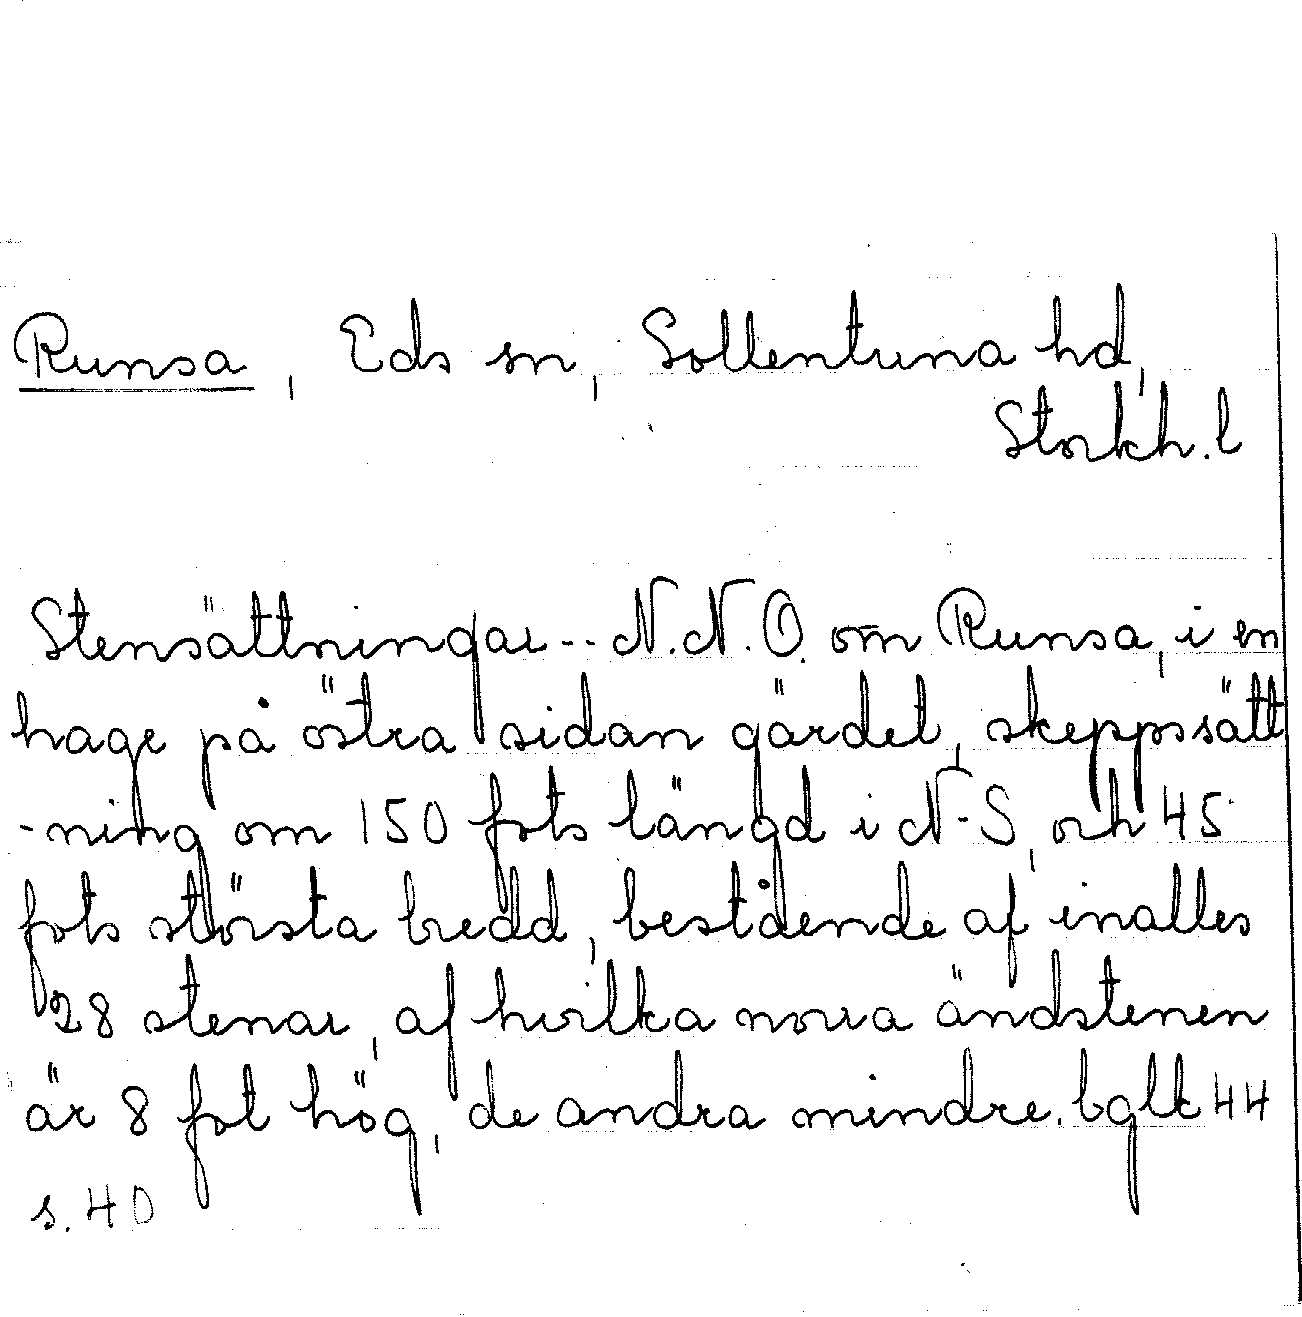 Runsa, Eds sn, Sollentuna hd,
Stockh. l
Stensättningar -- N.N.O. om Runsa, i en
hage på östra sidan gärdet, skeppssätt
-ning om 150 fots längd i N-S, och 45
fots största bredd, bestående af inalles
28 stenar, af hvilka norra ändstenen
är 8 fot hög, de andra mindre. bglk 44
s. 40